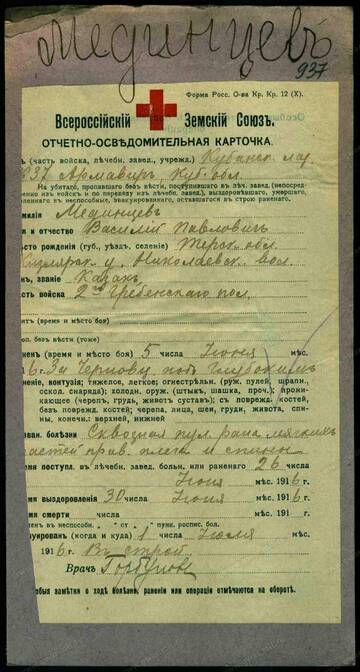 Мединцевъ
937
Форма Росс. О-ва Кр. Кр. 12 (X).
Всероссійскій Земскій Союзъ.
ОТЧЕТНО-ОСВѢДОМИТЕЛЬНАЯ КАРТОЧКА.
(часть войска, лѣчебн. завед., учрежд.) Кубанск. лаз
937 Армавир, Куб. обл.
На убитаго, пропавшаго безъ вѣсти, поступившаго въ лѣч. завед. (непосред-
изъ войскъ и по переводу изъ лѣчебн. завед.), выздоровѣвшаго, умершаго,
неспособнымъ, эвакуированнаго, оставшагося въ строю раненаго.
Мединцевъ
и отчество Василій Павловичъ
рожденія (губ., уѣзд, селеніе) Терск. обл.
Кизлярск. у. Николаевск. вол.
званіе Казакъ
войска 2го Гребенскаго пол.
(время и мѣсто боя)
безъ вѣсти (тоже)
(время и мѣсто боя) 5 числа Іюня мѣс.
6 г. За Черновц. под Глубокимъ
раненіе, контузія; тяжелое, легкое; огнестрѣльн. (руж. пулей, шрапн.,
оскол. снаряда); холодн. оруж. (штыкъ, шашка, проч.); прони-
кающее (череп., грудь, живот. сустав.); съ поврежд. костей,
безъ поврежд. костей; черепа, лица, шеи, груди, живота, спи-
ны, конечн.: верхней, нижней
болѣзни Сквозная пул. рана мягкихъ
частей прав. плеча и спины
поступ. въ лѣчебн. завед. больн. или раненаго 26 числа
Іюня мѣс. 1916 г.
выздоровленія 30 числа Іюня мѣс. 1916 г.
смерти числа мѣс. 191 г.
въ неспособн. " ст. " пункт. роспис. бол.
(когда и куда) 1 числа Іюля мѣс.
1916 г. Въ строй
Врачъ Горбунов
Особыя замѣтки о ходѣ болѣзни, раненіи или операціи отмѣчаются на оборотѣ.